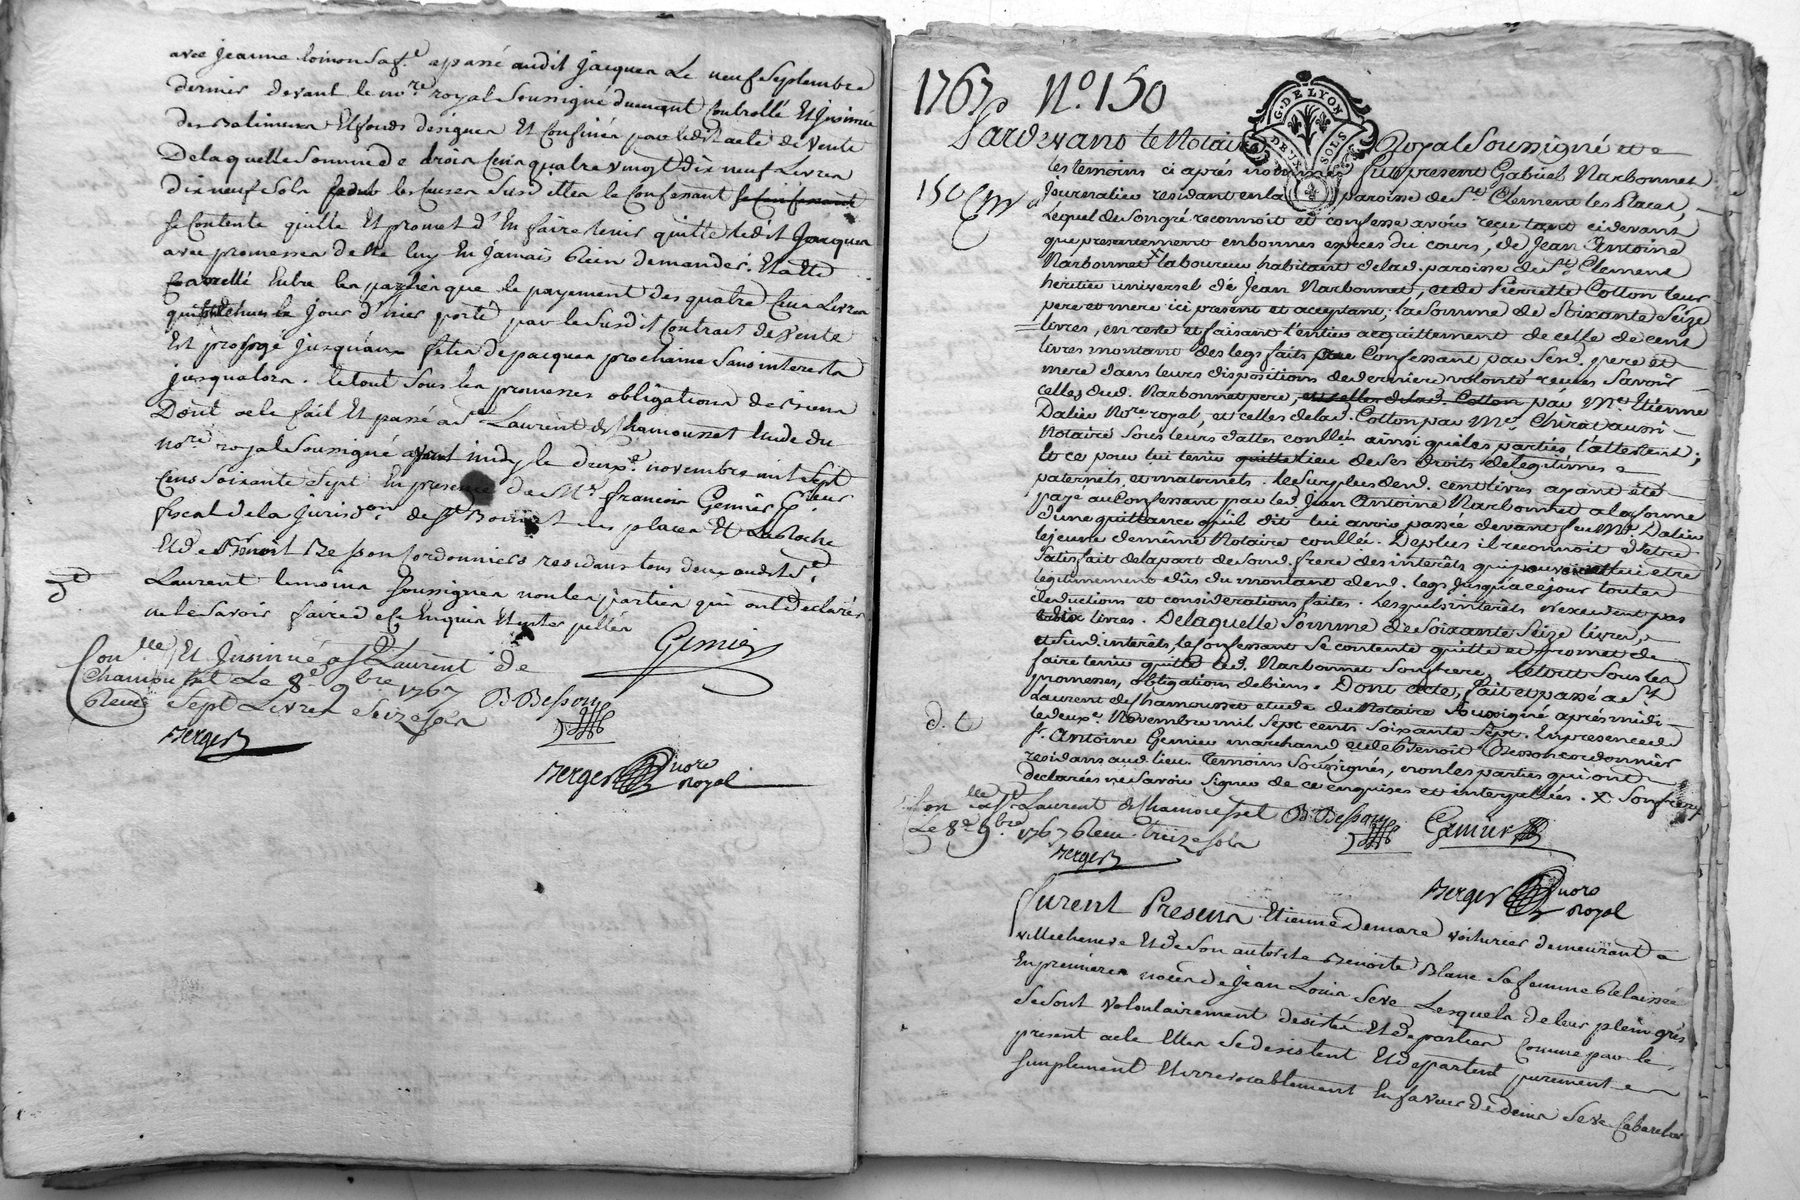 avec jeanne Loinon sa f.e e passé audit jacquen Le neuf Septembre
dernier devant le no.re royal Soussigné duement Controllé Et Jnsinué
des Batimens Et fonds designés Et Confinés par ledit acte de vente
De laquelle Somme de trois Cens quatre vingt dix neuf Livres
dix neuf Sols pour les causes Susdittes le Confessant
Se Contente quitte Et promet d'En faire tenir quitte ledit Jacquen
avec promesses de ne luy En jamais Rien demander. Et a Eté
Convenû Entre les parties que le payement des quatre Cens Livres
qui Echus le Jour d'hier porté par le Susdit Contrat de vente
Est prorogé jusqu'aux fêtes de pacques prochaine Sans interests
jusqualors. le tout Sous les promesses obligations de Biens
Dont acte fait Et passé a S.t Laurent de Chamousset Etude du
no.re royal Soussigné avant midy le deux.e novembre mil Sept
Cens Soixante Sept En presence de M.r francois Gemier P.reur
fiscal de la jurisd.on de St Bonnet les places Et La Roche
Et de Benoit Besson Cordonniers residans tous deux audit S.t
Laurent temoins Soussignes non les parties qui ont declarés
ne le Savoir faire de ce Enquis Et inter pellés
Gemier
Con.llé Et Jnsinué a S.t Laurent de
Chamousset Le 8.e 9.bre 1767
Reçu Sept Livres Seize Sols
B Besson
Berger
Berger nore
Royal
1767 N.o 150
G. DE LYON
DEUX SOLS
Pardevant le Notaire Royal Soussigné et
les temoins ci après nommés fut present Gabriel Narbonnet
150 Journalier residant en la paroisse de S.t Clement les Places,
Lequel de Son gré reconnoit et confesse avoir reçu tant ci devant
que presentement en bonnes especes du cours, de Jean Antoine
Narbonnet x laboureur habitant de lad. paroisse de S.t Clement
heritier universel de Jean Narbonnet, et de Pierrette Cotton leur
pere et mere ici present et acceptant, la Somme de Soixante Seize
livres, en reste et faisant l'entier acquittement de celle de cent
livres montant des legs faits au Confessant par Sesd. pere et
mere dans leurs dispositions de derniere volonté reçues Savoir
celles dud. Narbonnet pere, et celles de lad. Cotton par M.e Etienne
Dalier No.re royal, et celles de lad. Cotton par M.e Chirat aussi
Notaire Sous leurs dattes conllés ainsi que les parties l'attestent;
Et ce pour lui tenir quitte lieu de Ses droits de legitimes
paternels et maternels. Le Surplus desd. cent livres ayant été
payé au Confessant par led. Jean Antoine Narbonnet a la forme
d'une quittance qu'il dit lui avoir passée devant feu M.e Dalier
le jeune de même Notaire conllée. De plus il reconnoit d'etre
Satisfait de la part de Sond. frere des interêts qui pouvoient lui etre
legitimement dûs du montant desd. legs jusqu'à ce jour toutes
deductions et considerations faites. Lesquels interêts n'excedent pas
livres. De laquelle Somme de Soixante Seize livres,
et Susd. interêts, le Confessant Se contente quitte et promet de
faire tenir quitte led. Narbonnet Son frere, le tout Sous les
promesses, obligations de biens. Dont acte, fait et passé a S.t
Laurent de Chamousset etude du Notaire Soussigné après midi
le deux.e Novembre mil Sept cents Soixante Sept. En presence de
S.r Antoine Gemier marchand et de Benoit Besson cordonnier
residans aud. lieu. Temoins Soussignés, et non les parties qui ont
declarées ne Savoir Signer de ce enquises et interpellées. x Son frere
Con.llé a S.t Laurent de Chamousset
Le 8.e 9.bre 1767 Reçu treize Sols
B Besson Gemier
Berger
Berger nore
Royal
Furent Presens Etienne Demare voiturier demeurant a
villecheneve Et de Son autorité Benoite Blanc Sa femme delaissée
En premieres noces de Jean Louis Seve Lesquels de leur plein gré
Se Sont volontairement desistés Et departies Comme par le
present acte Elles Se desistent Et departent purement
Simplement Et irrevocablement En faveur de denis Seve Cabaretier